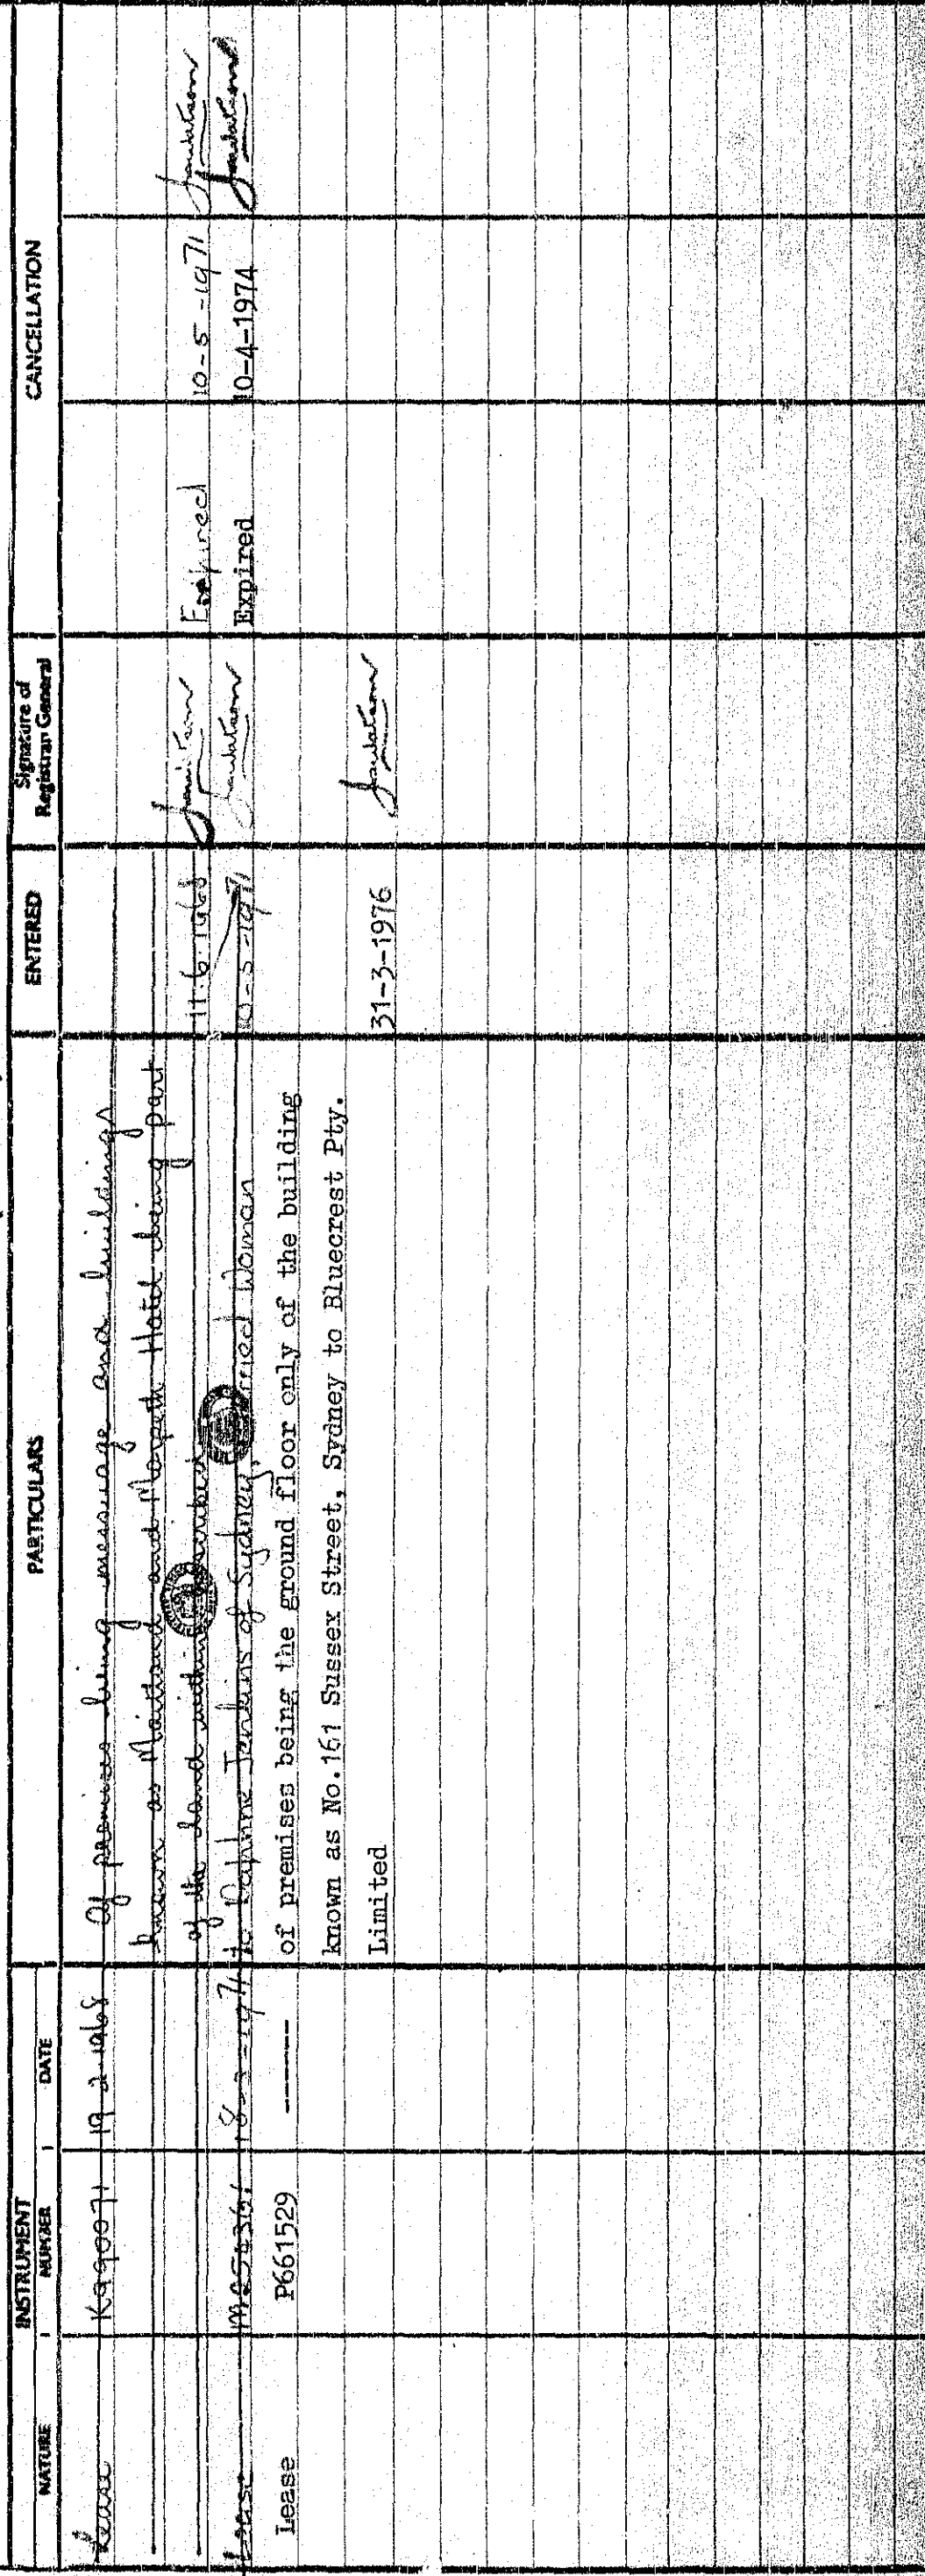 INSTRUMENT
NATURE NUMBER DATE
PARTICULARS
ENTERED
Signature of
Registrar General
CANCELLATION
Lease K990071 19.2.1968 Of premises being messuage and buildings
known as Maitland and Morpeth Hotel being part
of the land within described 11.6.1968 Expired 10-5-1971
Lease M254361 18-2-1971 to Daphne Jenkins of Sydney, Married Woman 10-5-1971 Expired 10-4-1974
Lease P661529 ------ of premises being the ground floor only of the building
known as No.161 Sussex Street, Sydney to Bluecrest Pty.
Limited 31-3-1976